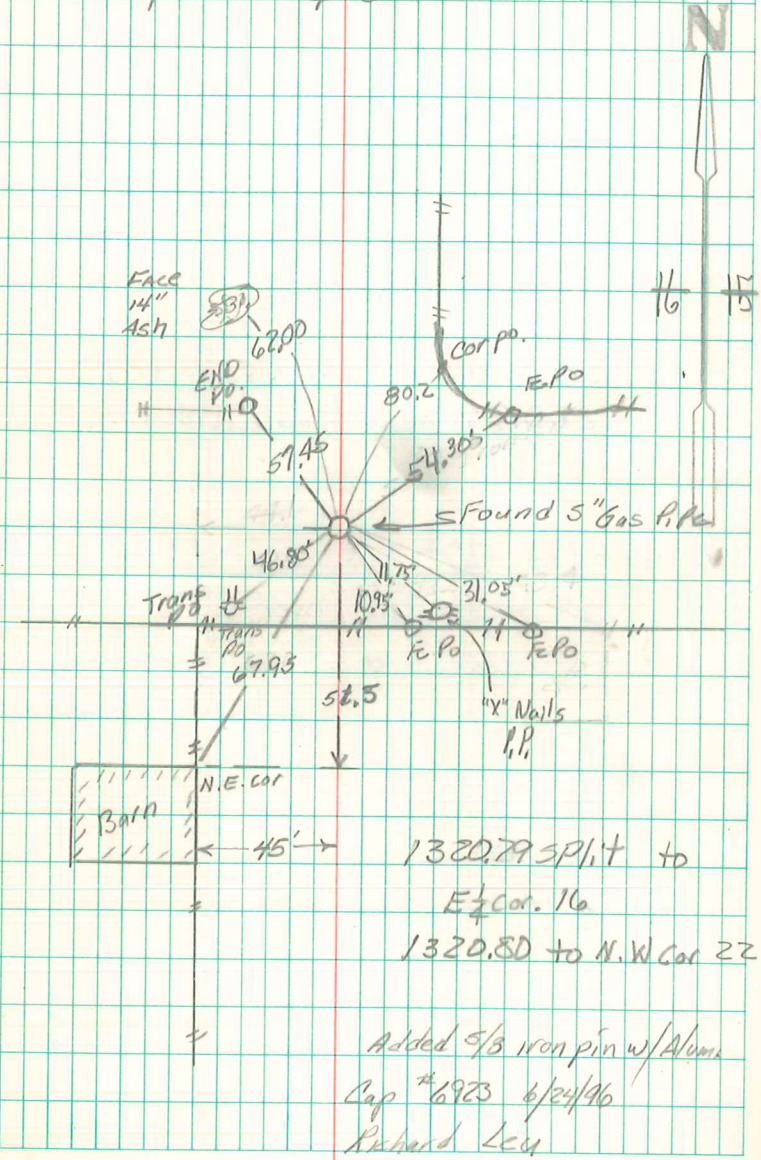 N
16 15
Face
14"
Ash
62.00
Cor po.
END
Po.
80.2
Fe Po
57.45
54.30'
Found 5" Gas Pipe
46.80'
11.75'
10.95'
31.05'
Trans
Po
Trans
Po
Fe Po
Fe Po
67.95
"X" Nails
P.P.
N.E. Cor
Barn
45'
1320.79 split to
E 1/4 Cor. 16
1320.80 to N.W Cor 22
Added 5/8 iron pin w/ Alum.
Cap #6923 6/24/96
Richard Leu